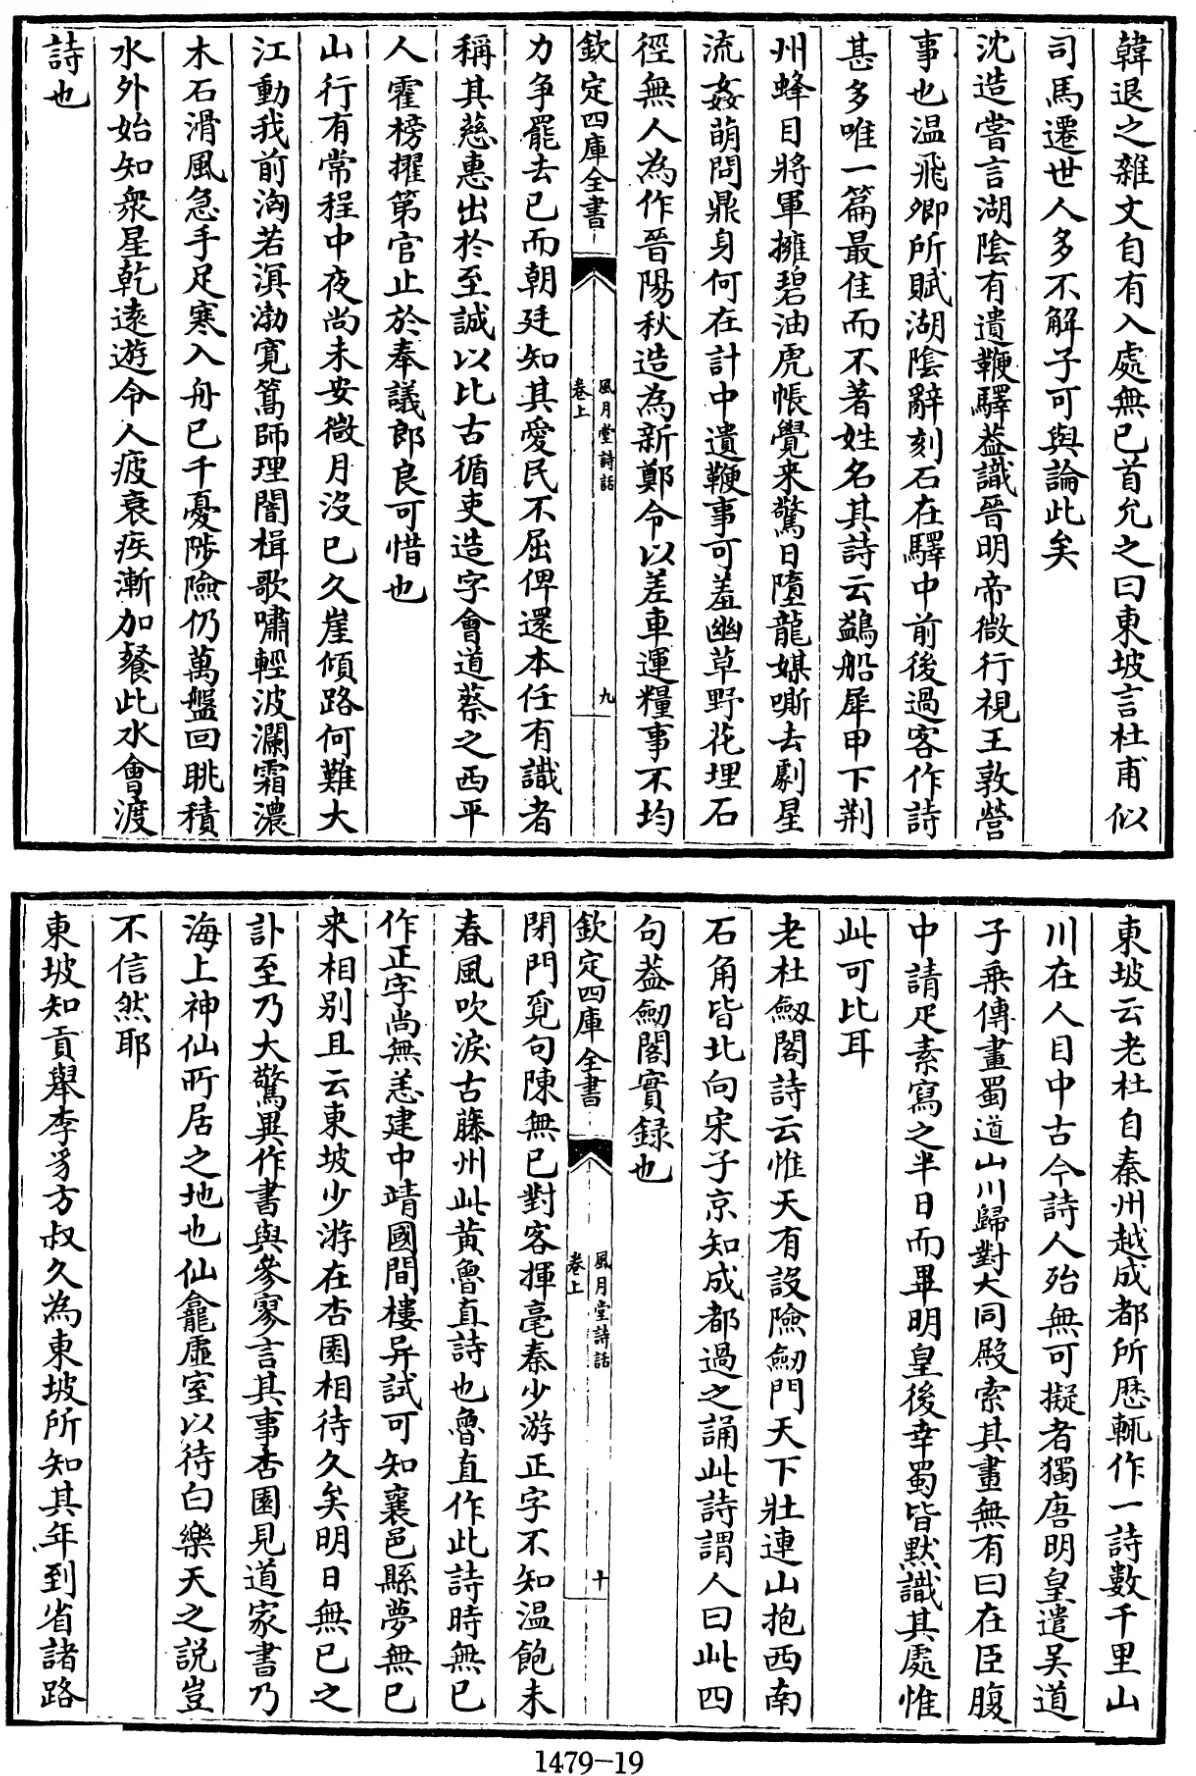 韓退之雜文自有入處無已首允之曰東坡言杜甫似
司馬遷世人多不解子可與論此矣
沈造嘗言湖陰有遺鞭驛葢識晉明帝微行視王敦營
事也温飛卿所賦湖陰辭刻石在驛中前後過客作詩
甚多唯一篇最佳而不著姓名其詩云鷁船犀甲下荆
州蜂目將軍擁碧油虎帳覺来驚日墮龍媒嘶去劇星
流姦萌問鼎身何在計中遺鞭事可羞幽草野花埋石
徑無人為作晉陽秋造為新鄭令以差車運糧事不均
欽定四庫全書
風月堂詩話
卷上
九
力争罷去已而朝廷知其愛民不屈俾還本任有識者
稱其慈惠出於至誠以比古循吏造字會道蔡之西平
人霍榜擢第官止於奉議郎良可惜也
山行有常程中夜尚未安微月沒已久崖傾路何難大
江動我前洶若溟渤寛篙師理闇楫歌嘯輕波瀾霜濃
木石滑風急手足寒入舟已千憂陟險仍萬盤回眺積
水外始知衆星乾逺遊令人疲衰疾漸加餐此水會渡
詩也
東坡云老杜自秦州越成都所歴輒作一詩數千里山
川在人目中古今詩人殆無可擬者獨唐明皇遣吴道
子乘傳畫蜀道山川歸對大同殿索其畫無有曰在臣腹
中請疋素寫之半日而畢明皇後幸蜀皆黙識其處惟
此可比耳
老杜劔閣詩云惟天有設險劔門天下壯連山抱西南
石角皆北向宋子京知成都過之誦此詩謂人曰此四
句葢劔閣實録也
欽定四庫全書
風月堂詩話
卷上
十
閉門覓句陳無已對客揮毫秦少游正字不知温飽未
春風吹淚古藤州此黄魯直詩也魯直作此詩時無已
作正字尚無恙建中靖國間樓异試可知襄邑縣夢無已
来相别且云東坡少游在杏園相待久矣明日無已之
訃至乃大驚異作書與參寥言其事杏園見道家書乃
海上神仙所居之地也仙龕虚室以待白樂天之説豈
不信然耶
東坡知貢舉李豸方叔久為東坡所知其年到省諸路
1479-19